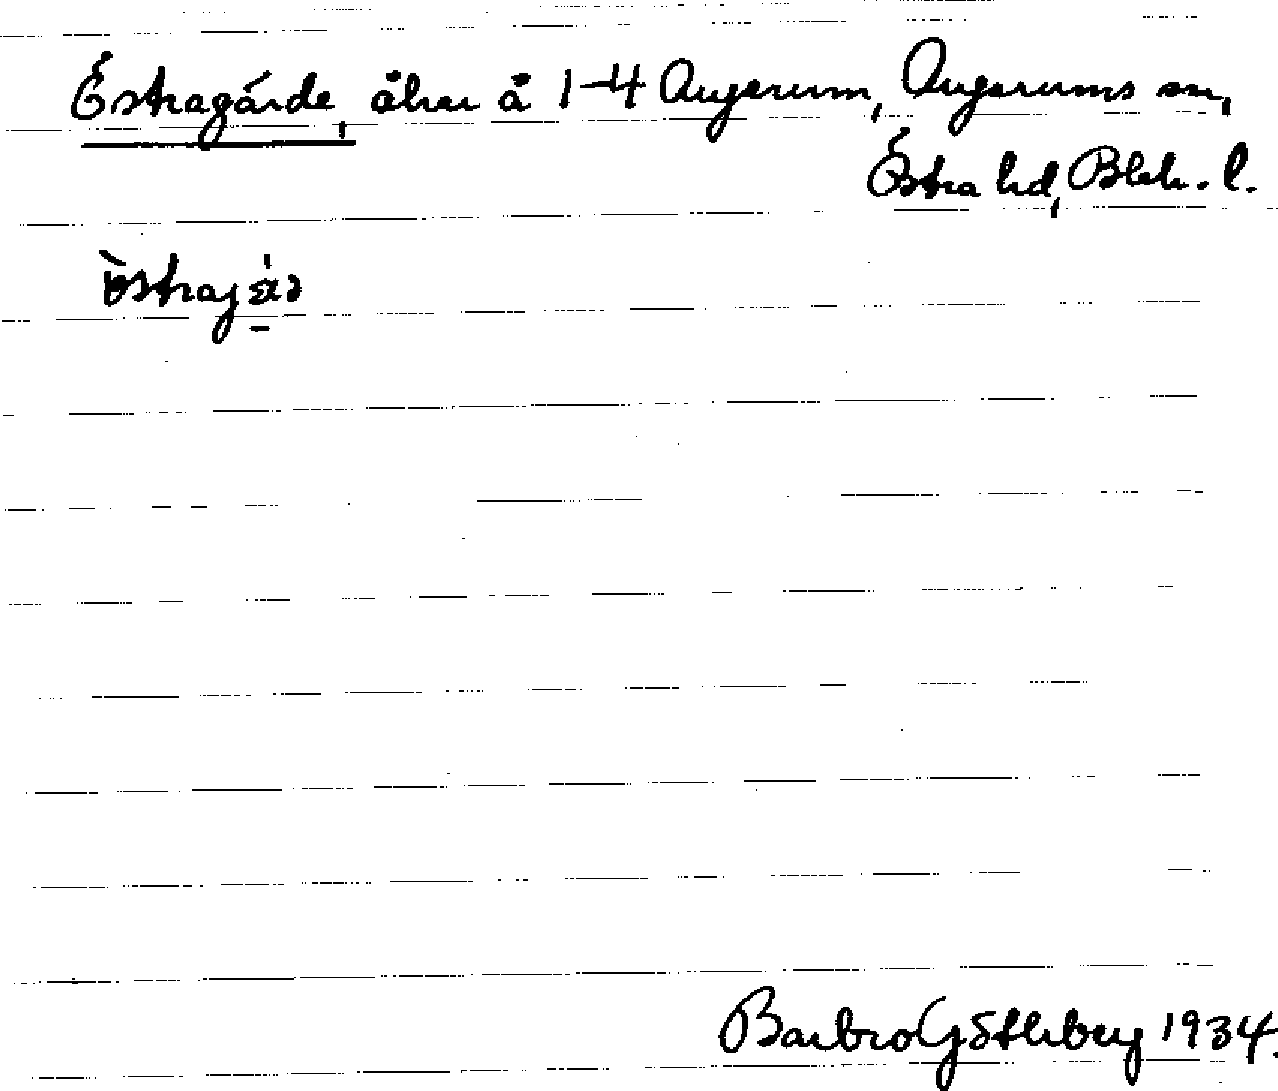 Östragärde, åker å 1-4 Augerum, Augerums sn,
Östra hd, Blek. l.
Barbro Götlberg 1934.